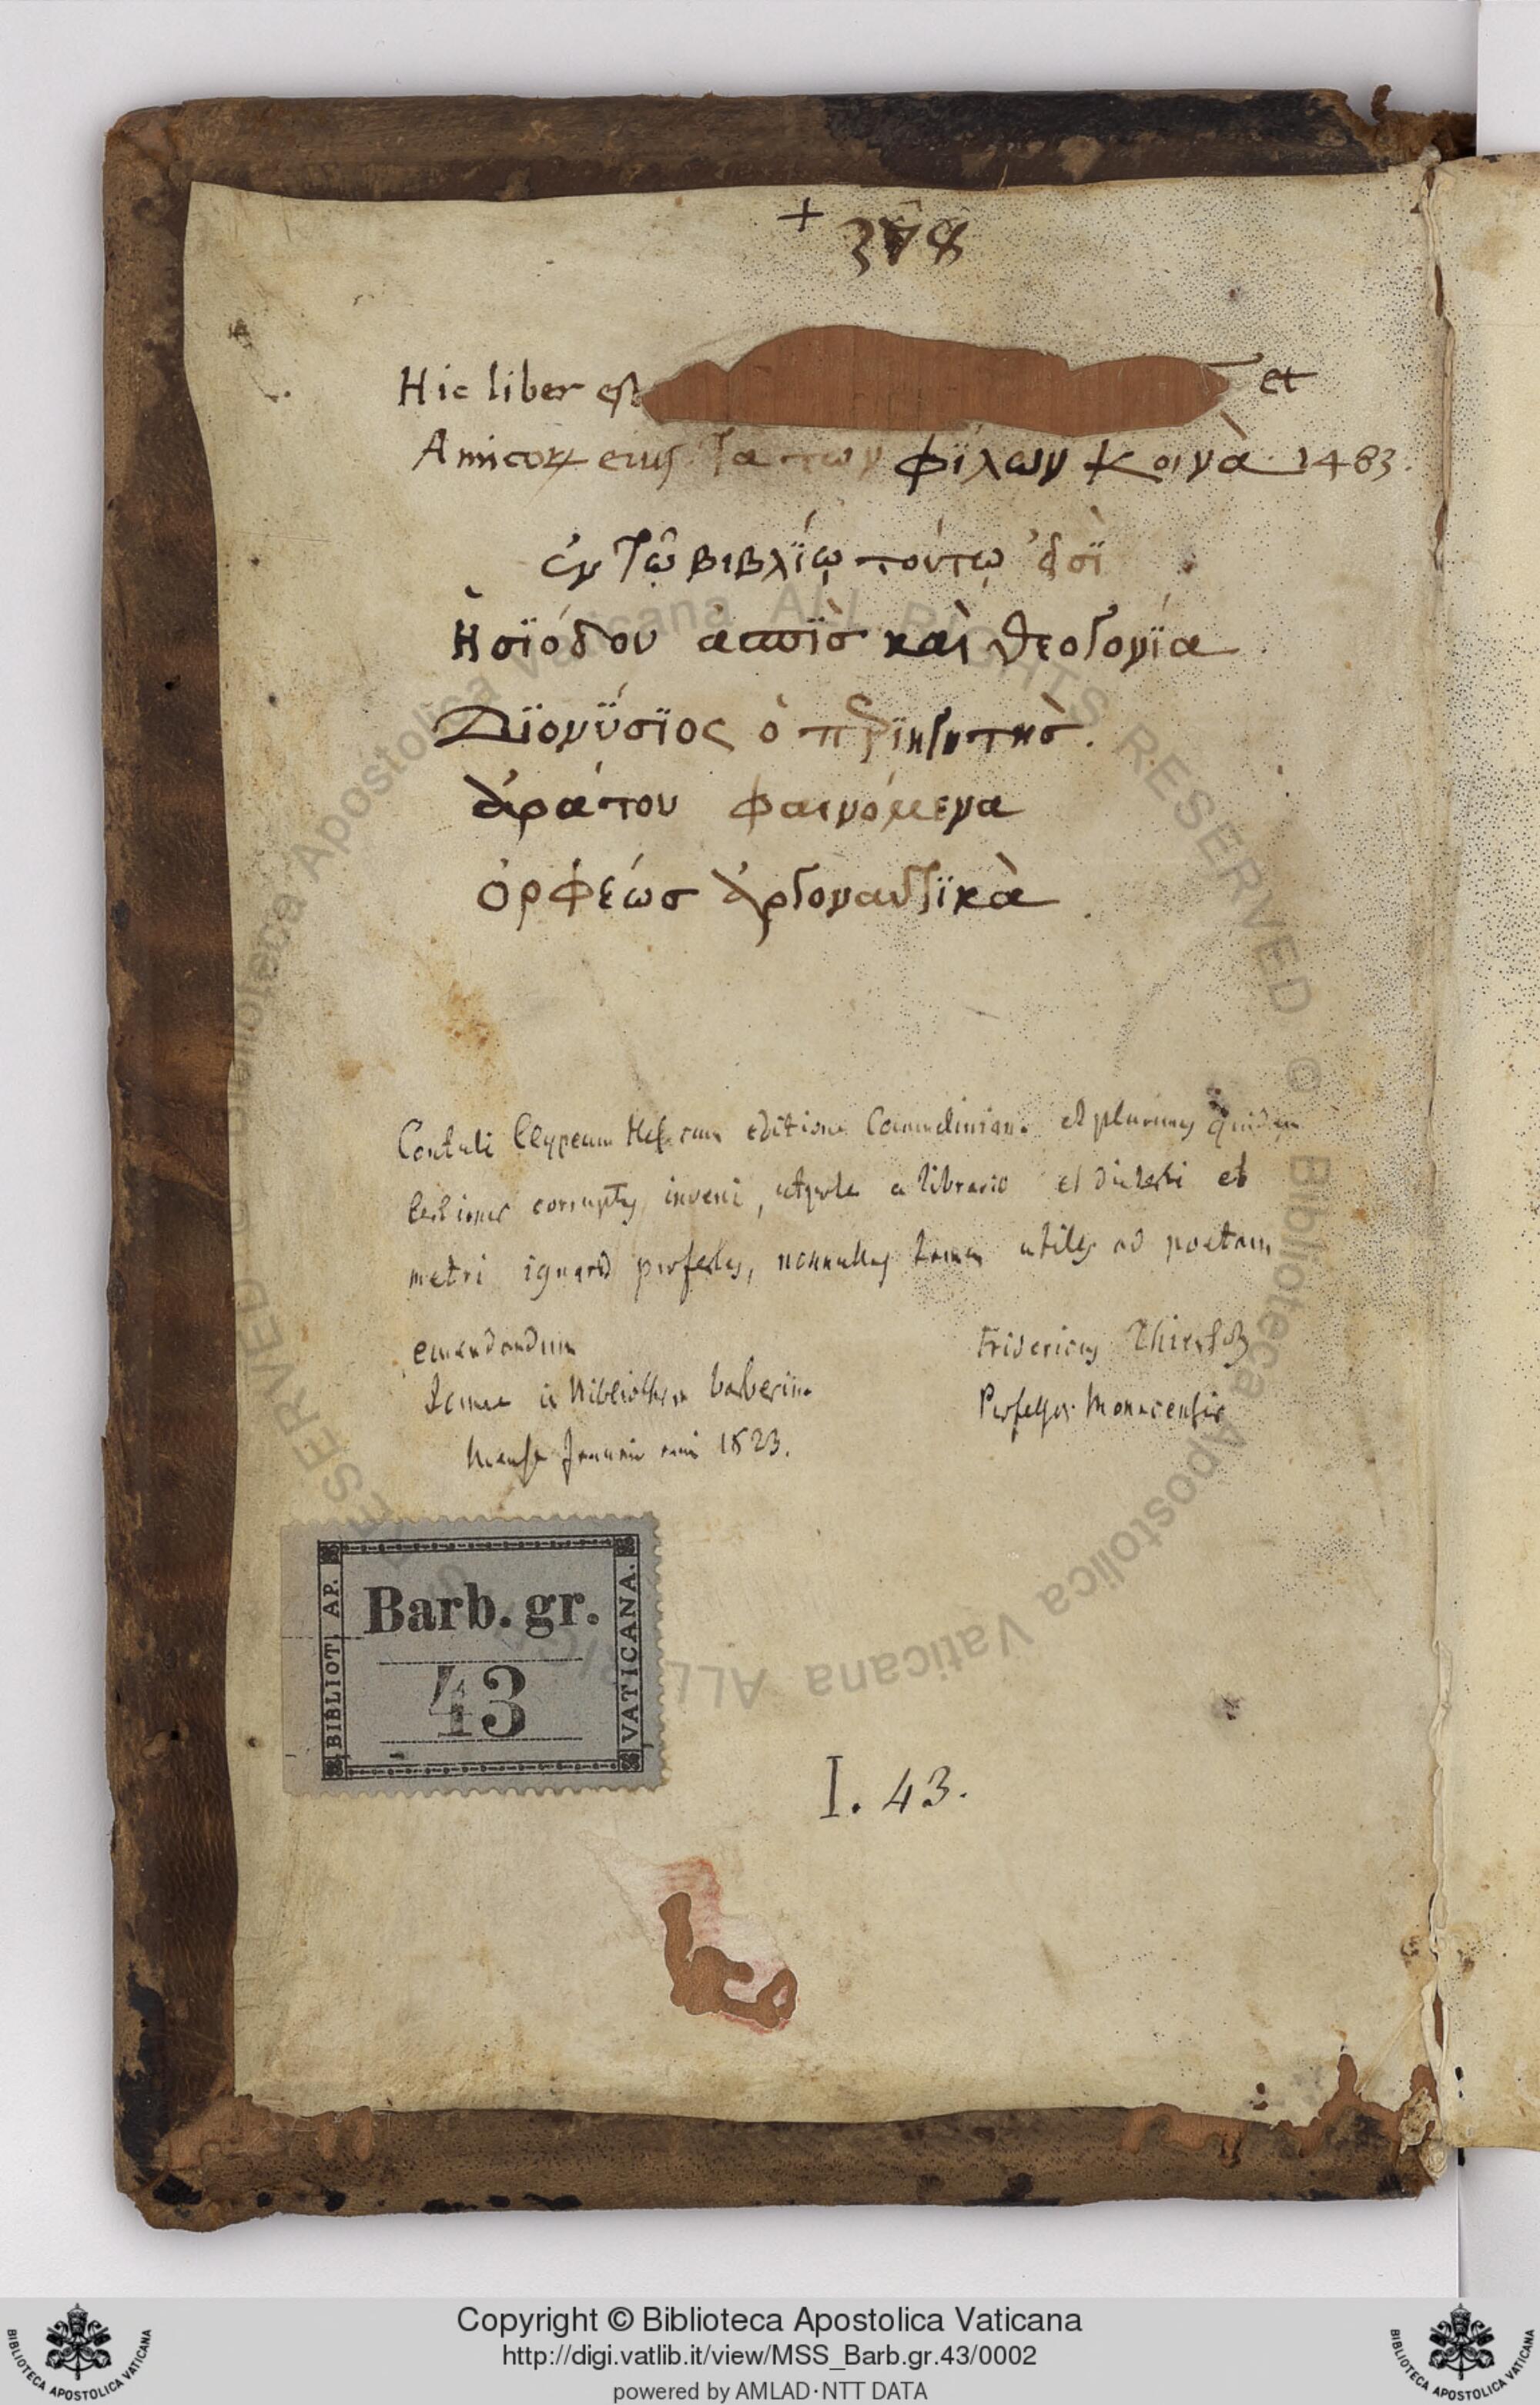 +
Hic liber est et
Amicoꝝ eius. Τὰ τῶν φϊλων κοινὰ· 1483.
ἐν τῷ βιβλΐῳ τούτῳ εἰσῒ
Ἡσϊόδου ἀσπῒσ καὶ θεογονΐα
Δϊονΰσϊος ὁ περϊηγητὴσ.
ἀράτου φαινόμενα
ὀρφέωσ ἀργοναυτϊκὰ
Contuli Clypeum Hes. cum editione et plurimas quidem
lectiones corruptas inveni, utpote a librario et dialecti et
metri ignaro profectas, nonnullas tamen utiles ad poetam
emendandum
Fridericus Thiersch
Romae in Bibliotheca Barberina
Professor Monacensis
Mense Januario anni 1823.
BIBLIOT. AP. VATICANA.
Barb. gr.
43
I. 43.
Biblioteca Apostolica Vaticana ALL RIGHTS RESERVED ©
Copyright © Biblioteca Apostolica Vaticana
http://digi.vatlib.it/view/MSS_Barb.gr.43/0002
powered by AMLAD·NTT DATA
BIBLIOTECA APOSTOLICA VATICANA
BIBLIOTECA APOSTOLICA VATICANA